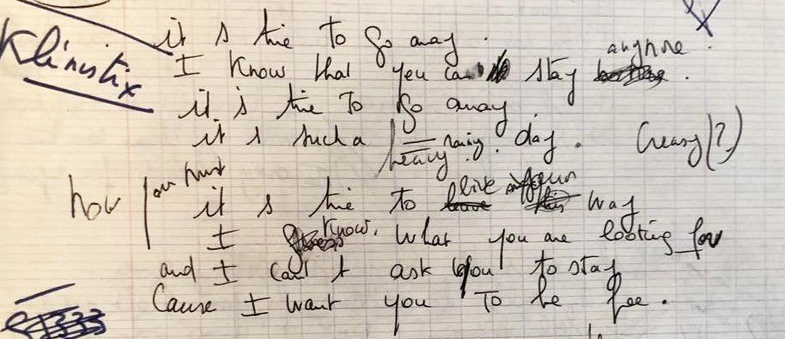 Klinistix
it s time to go away.
I Know that you can stay anymore.
it is time To go away
it s such a rainy. day. Crazy(?)
heavy
how
it s time to live your way
I Know. What you are looking for
and I can't ask you to stay
Cause I want you To be free.